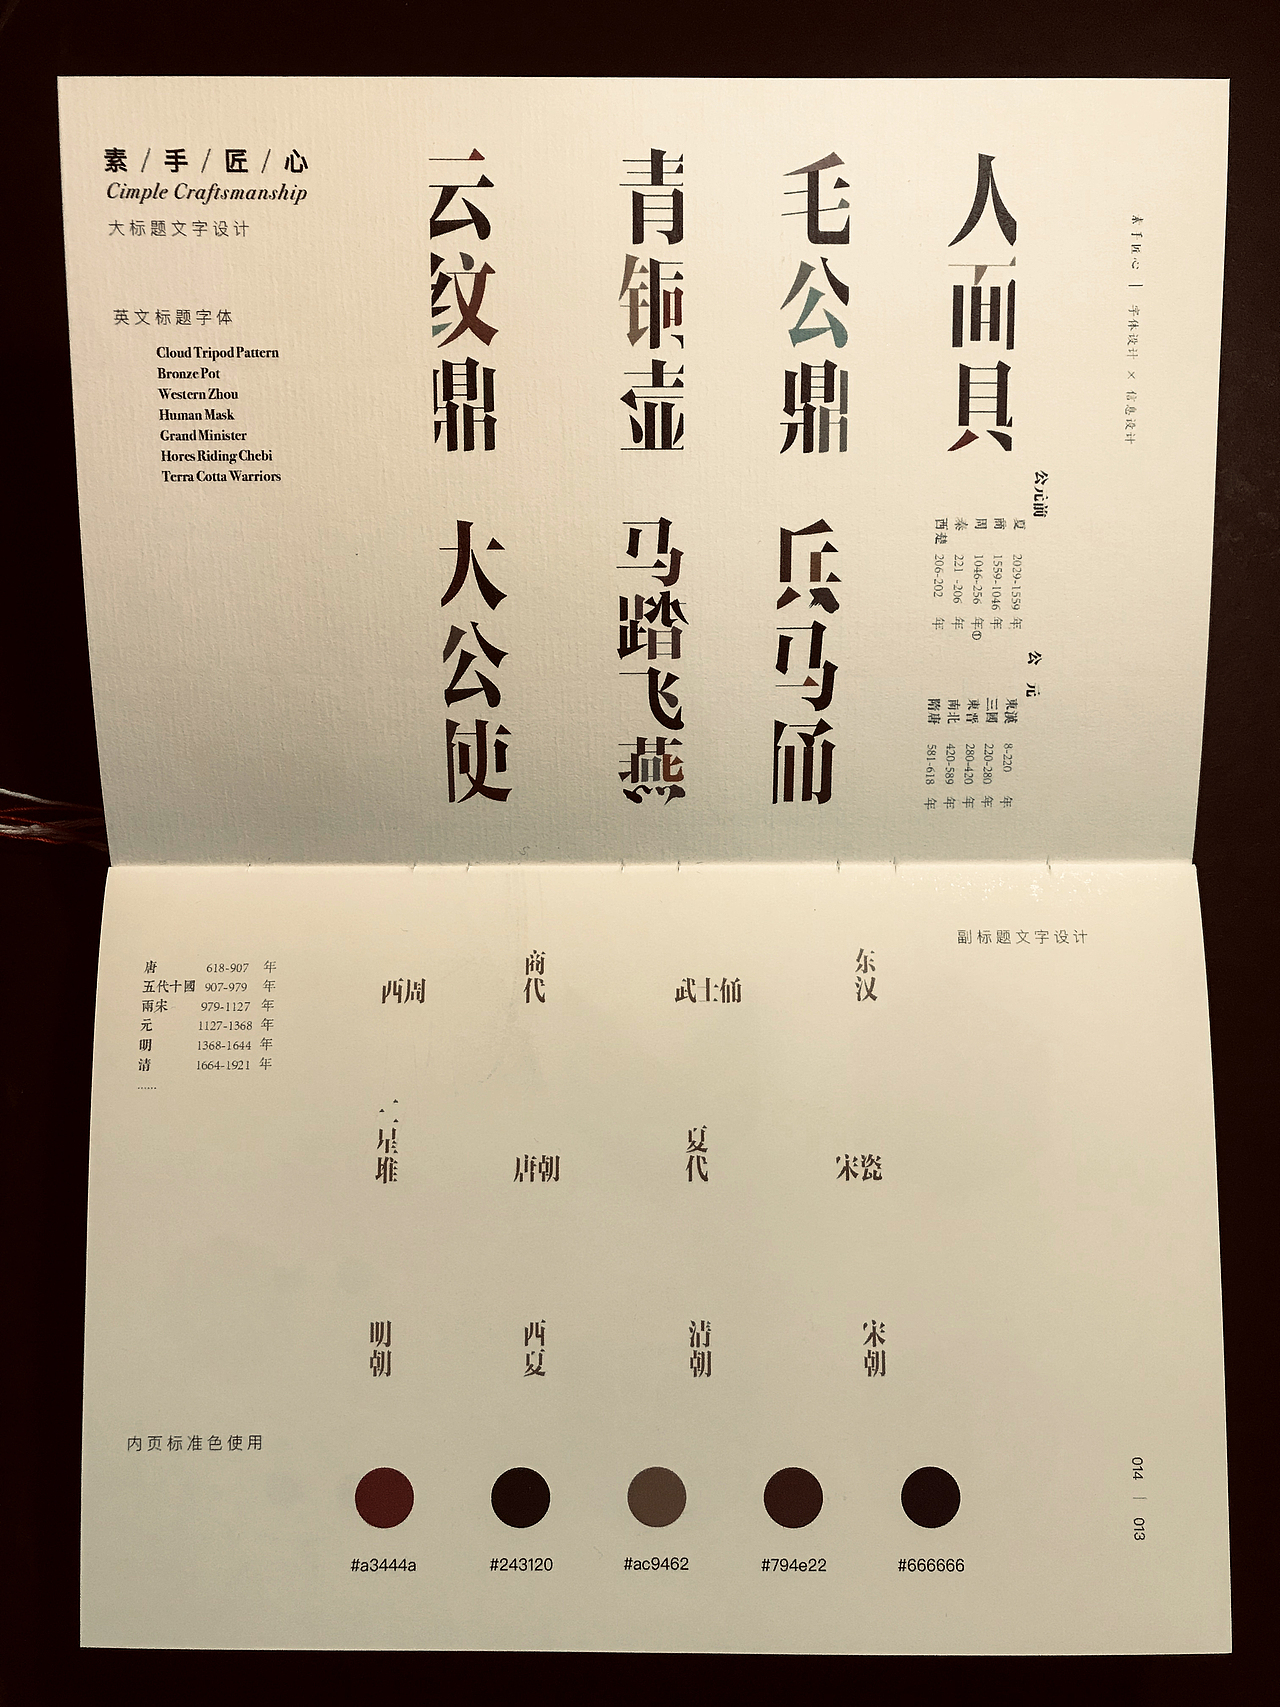 素/手/匠/心
Cimple Craftsmanship
大标题文字设计
英文标题字体
Cloud Tripod Pattern
Bronze Pot
Western Zhou
Human Mask
Grand Minister
Hores Riding Chebi
Terra Cotta Warriors
云纹鼎
青铜壶
毛公鼎
人面具
大公使
马踏飞燕
兵马俑
素手匠心 | 字体设计 × 信息设计
公元前
夏 2029-1559 年
商 1559-1046 年
周 1046-256 年①
秦 221 -206 年
西楚 206-202 年
公 元
東漢 8-220 年
三國 220-280 年
東晋 280-420 年
南北 420-589 年
隋唐 581-618 年
副标题文字设计
唐 618-907 年
五代十國 907-979 年
兩宋 979-1127 年
元 1127-1368 年
明 1368-1644 年
清 1664-1921 年
......
西周
商代
武士俑
东汉
三星堆
唐朝
夏代
宋瓷
明朝
西夏
清朝
宋朝
内页标准色使用
#a3444a
#243120
#ac9462
#794e22
#666666
014 | 013